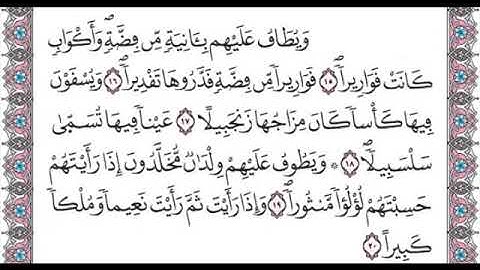 وَيُطَافُ عَلَيْهِم بِـَٔانِيَةٍ مِّن فِضَّةٍ وَأَكْوَابٍ
كَانَتْ قَوَارِيرَا۠ ۝١٥ قَوَارِيرَا۟ مِن فِضَّةٍ قَدَّرُوهَا تَقْدِيرًا ۝١٦ وَيُسْقَوْنَ
فِيهَا كَأْسًا كَانَ مِزَاجُهَا زَنجَبِيلًا ۝١٧ عَيْنًا فِيهَا تُسَمَّىٰ
سَلْسَبِيلًا ۝١٨ ۞ وَيَطُوفُ عَلَيْهِمْ وِلْدَٰنٌ مُّخَلَّدُونَ إِذَا رَأَيْتَهُمْ
حَسِبْتَهُمْ لُؤْلُؤًا مَّنثُورًا ۝١٩ وَإِذَا رَأَيْتَ ثَمَّ رَأَيْتَ نَعِيمًا وَمُلْكًا
كَبِيرًا ۝٢٠